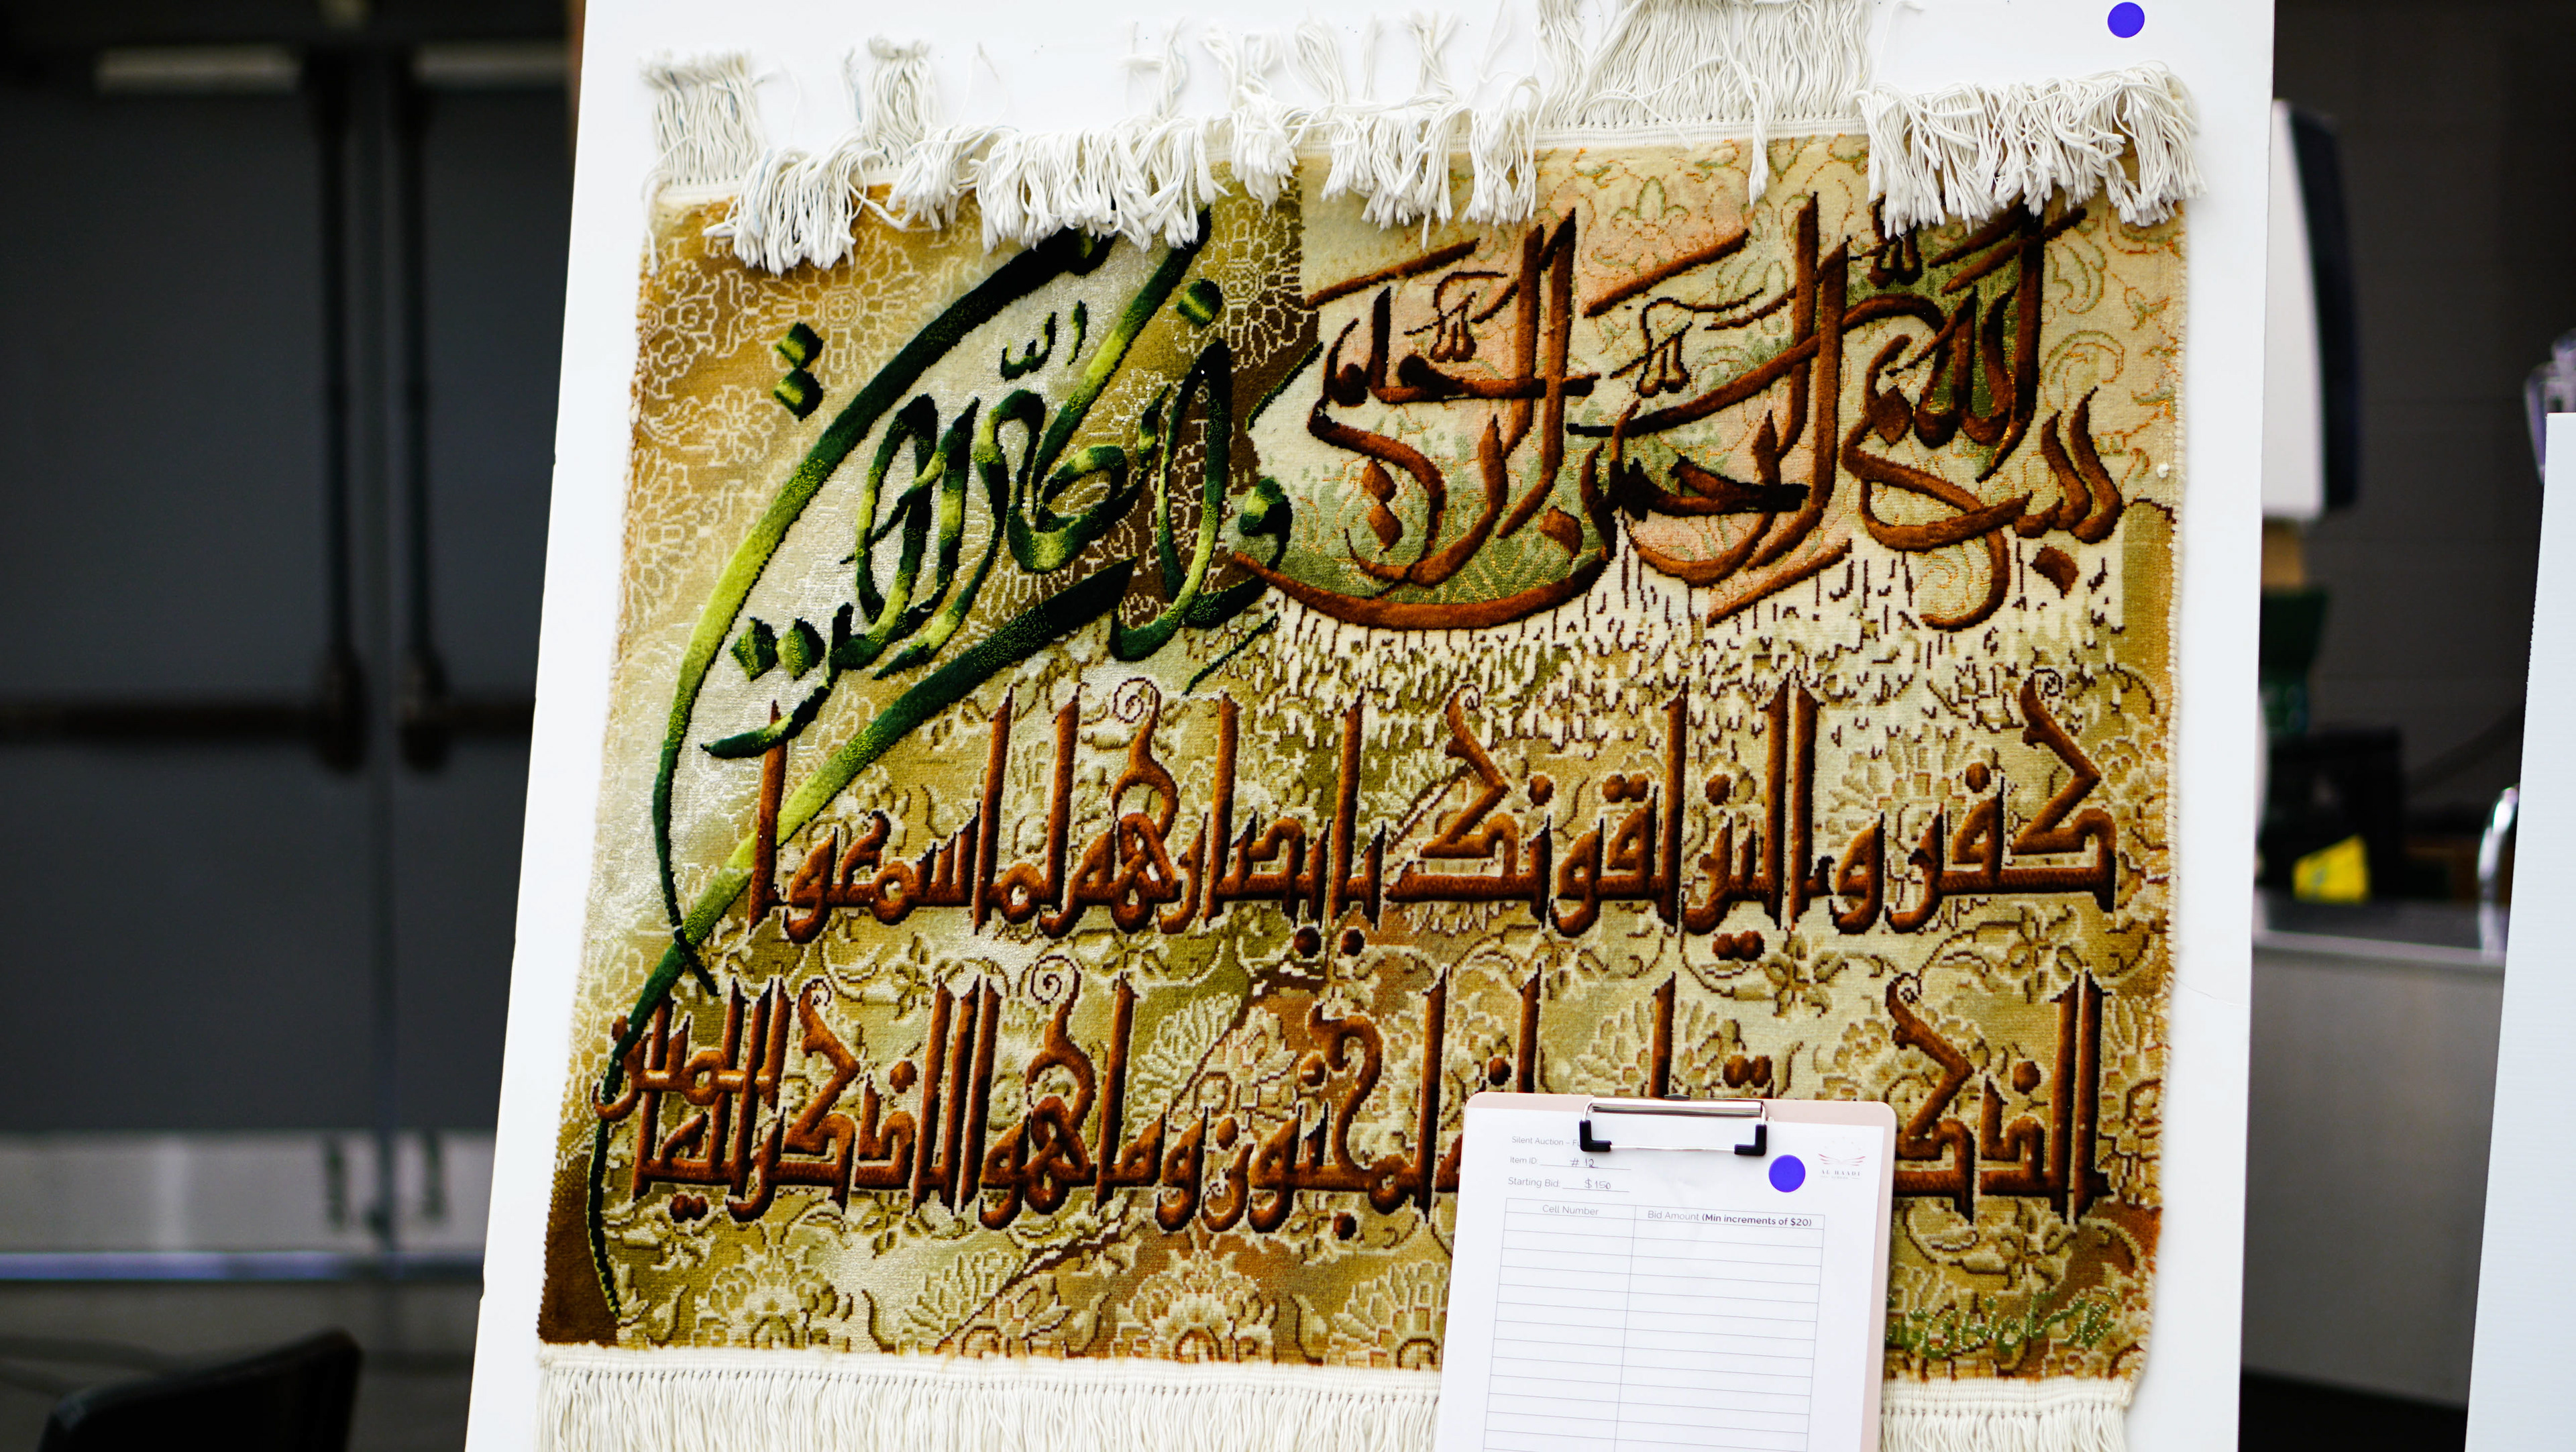 بسم الله الرحمن الرحیم
وان یکاد الذین
کفروا لیزلقونک بابصارهم لما سمعوا
الذکر لمجنون وما هو الا ذکر للعالمین
Silent Auction –
Item ID: # 12
Starting Bid: $150
Cell Number Bid Amount (Min increments of $20)